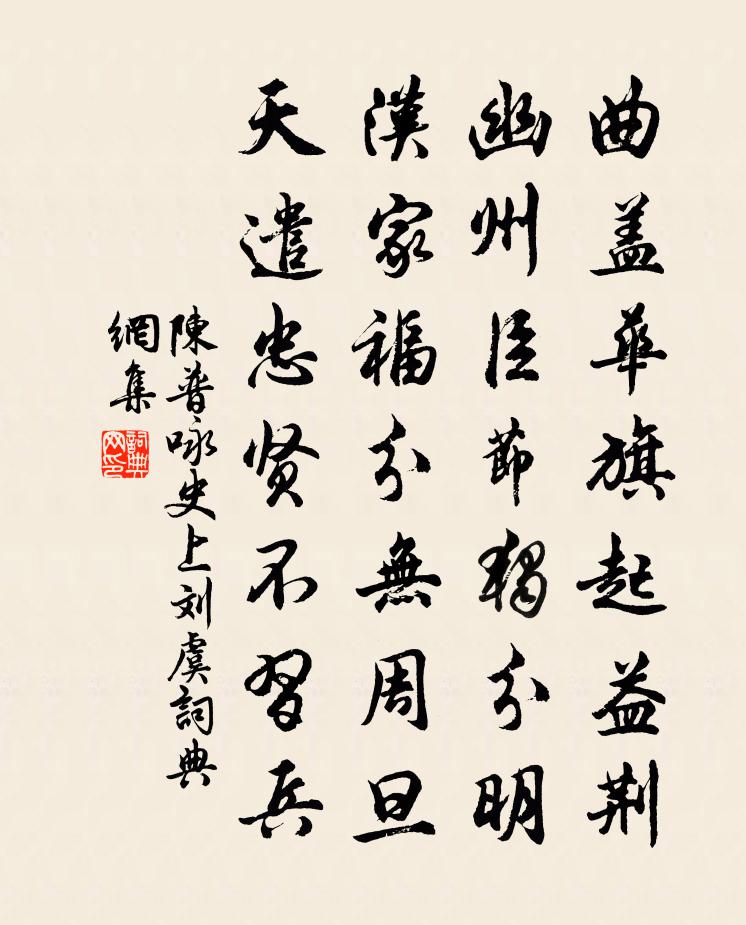 曲盖华旗起益荆
幽州臣節獨分明
漢家福分無周旦
天遣忠贤不習兵
陳普咏史上刘虞詞典
網集
詞典
网印